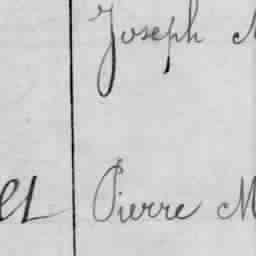 Joseph
el Pierre M